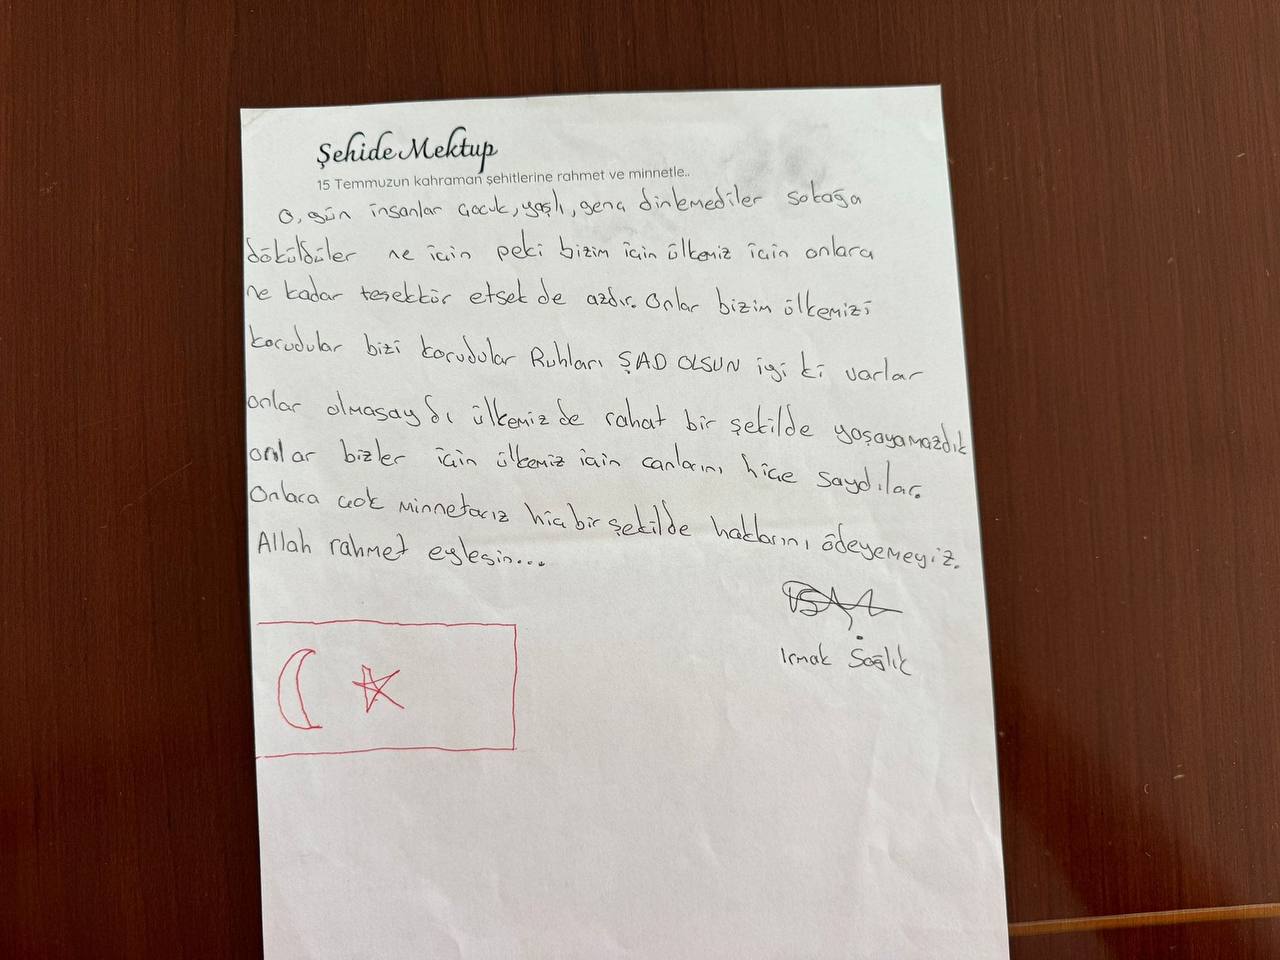 Şehide Mektup
15 Temmuzun kahraman şehitlerine rahmet ve minnetle..
O, gün insanlar çocuk, yaşlı, genç dinlemediler sokağa
döküldüler ne için peki bizim için ülkemiz için onlara
ne kadar teşekkür etsek de azdır. Onlar bizim ülkemizi
korudular bizi korudular Ruhları ŞAD OLSUN iyi ki varlar
onlar olmasaydı ülkemizde rahat bir şekilde yaşayamazdık
onlar bizler için ülkemiz için canlarını hiçe saydılar.
Onlara çok minnetarız hiç bir şekilde haklarını ödeyemeyiz.
Allah rahmet eylesin...
Irmak Sağlık